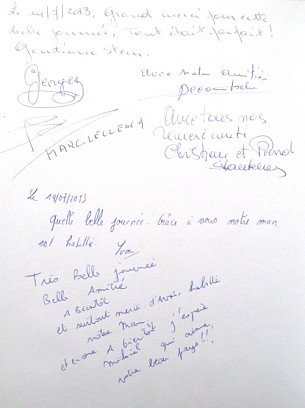 Le 14/7/2013, Grand merci pour cette
belle journée, Tout était parfait!
Georges
Avec notre amitié
MARC LELLOUCH
Avec tous nos
remerciements
Christiane et
Le 18/07/2013
Quelle belle journée. Grâce à vous notre man
est habillé.
Très Belle journée
Belle Amitié
A Bientôt
et surtout merci d'avoir habillé
notre Man.
et encore A bientôt j'espère
qui aime
votre beau pays!!